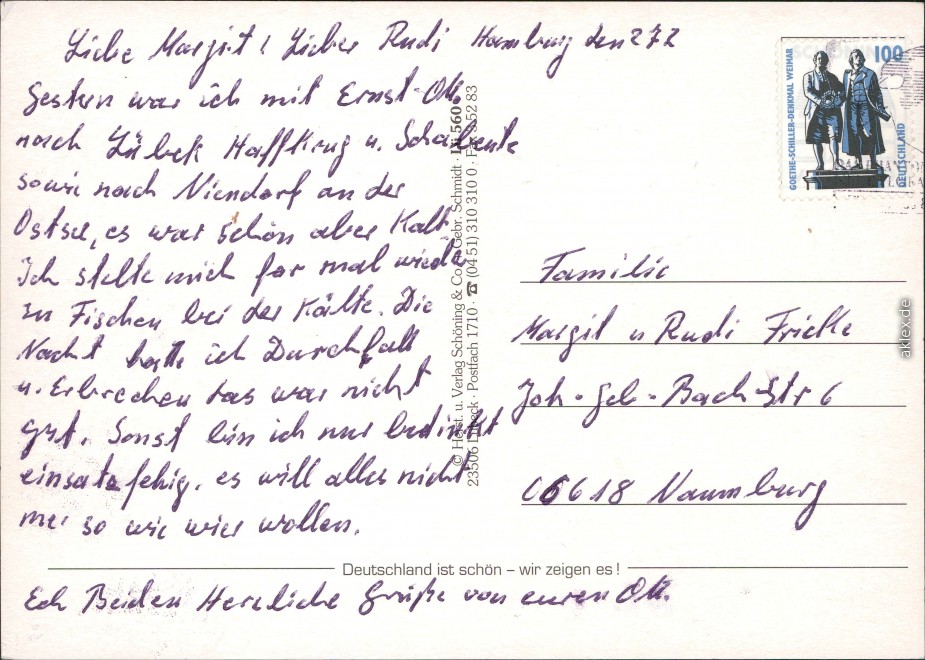 Liebe Margit! Lieber Rudi Hamburg den 27.2
Gestern war ich mit Ernst-Ott.
nach Lübek Haffkrug u. Schabeutz
sowie nach Niendorf an der
Ostsee, es war schön aber Kalt
Ich stellte mich for mal wieder
zu Fischen bei der Kälte. Die
Nacht hatte ich Durchfall
u. Erbrechen das war nicht
gut. Sonst bin ich nur bedinkt
einsatzfehig. es will alles nicht
mer so wie wier wollen.
Deutschland ist schön – wir zeigen es!
Ech Beiden Herzliche Grüße von euren Ott.
© Herst. u. Verlag Schöning & Co + Gebr. Schmidt · Lü 560
23506 Lübeck · Postfach 1710 · ☎ (04 51) 310 310 0 · Fax 5 52 83
100
GOETHE-SCHILLER-DENKMAL WEIMAR
DEUTSCHLAND
Familie
Margit u Rudi Fricke
Joh-Seb-Bach-Str 6
06618 Naumburg
aklex.de